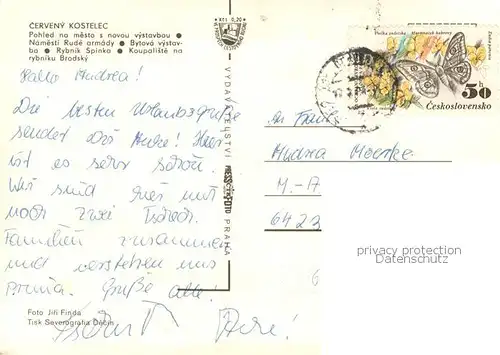 ČERVENÝ KOSTELEC
Pohled na město s novou výstavbou ●
Náměstí Rudé armády ● Bytová výstav-
ba ● Rybník Špinka ● Koupaliště na
rybníku Brodský
Hallo Andrea!
Die besten Urlaubsgrüße
sendet Dir Andre! Hier
ist es sehr schön.
Wir sind hier mit
noch zwei Tschech.
Familien zusammen
und verstehen uns
prima. Grüße alle!
Andre!
Foto Jiří Finda
Tisk Severografia Děčín
VYDAVATELSTVÍ
PRESSFOTO
PRAHA
Kčs 0,20
50 h
Československo
An Frau
Andrea
M.-A
6423
privacy protection
Datenschutz